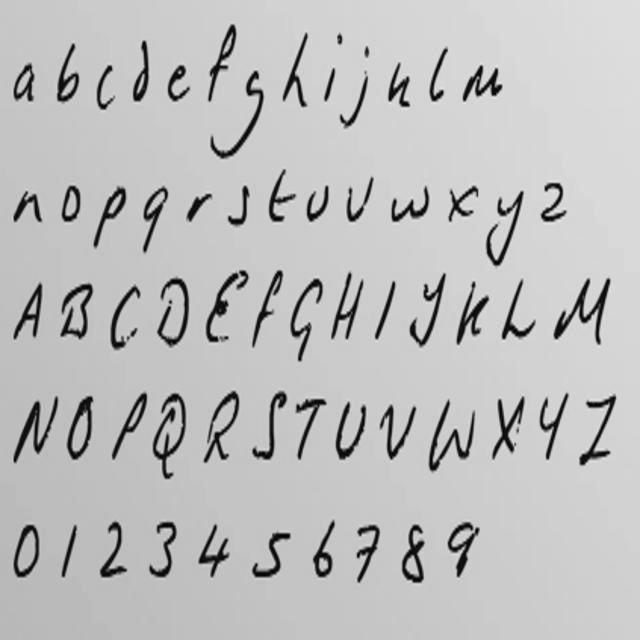 a b c d e f g h i j k l m
n o p q r s t u v w x y z
A B C D E F G H I J K L M
N O P Q R S T U V W X Y Z
0 1 2 3 4 5 6 7 8 9